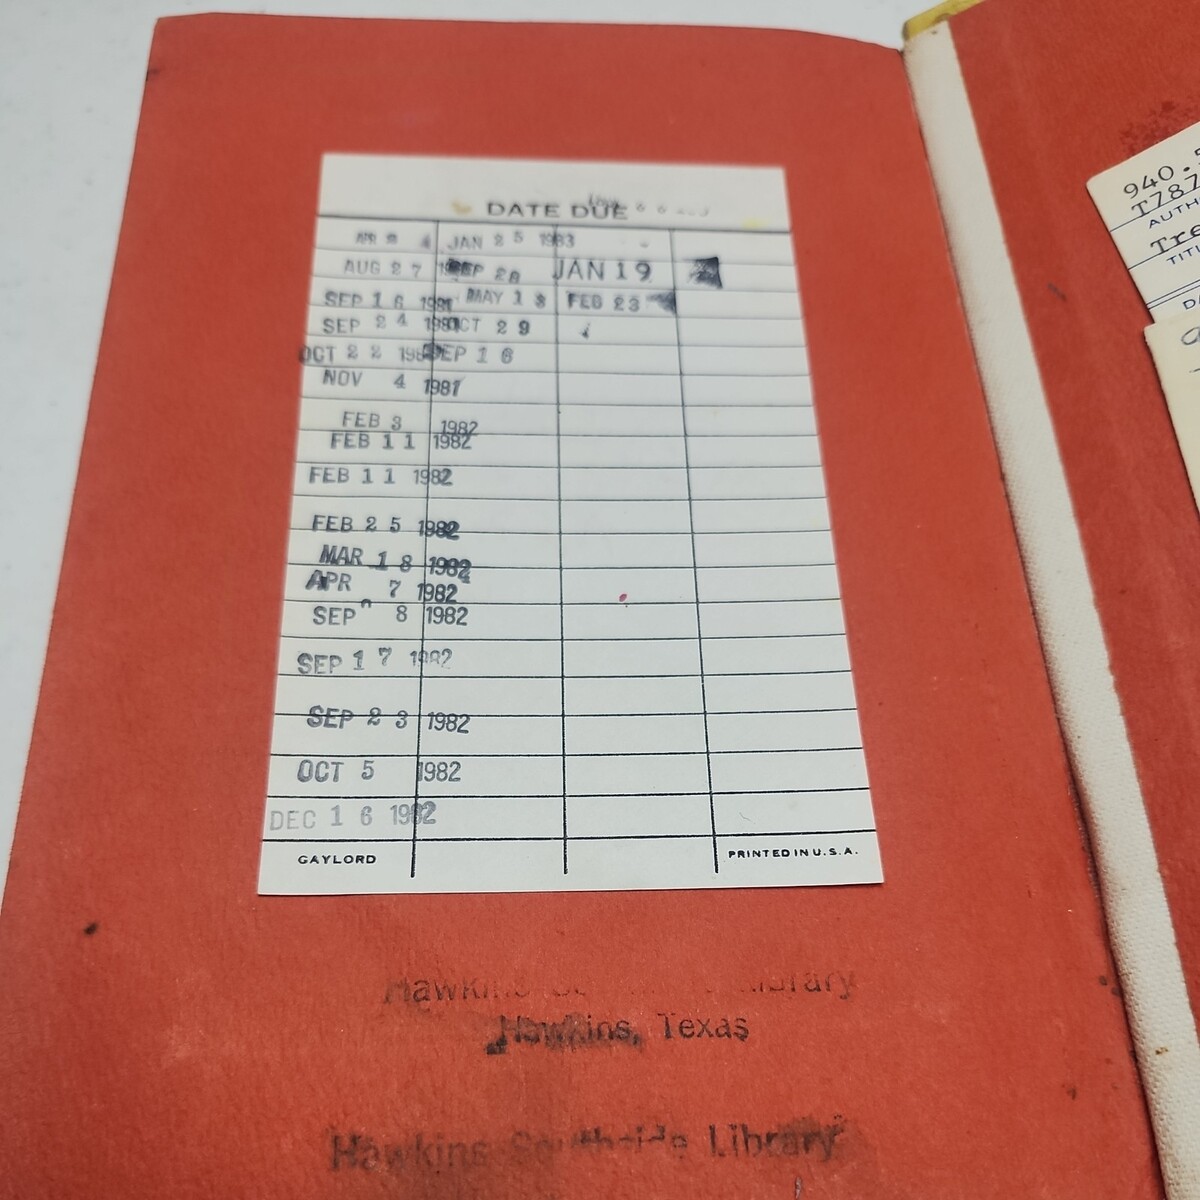 DATE DUE
JAN 25 1983
AUG 27 SEP 28 JAN 19
SEP 16 1981 MAY 18 FEB 23
SEP 24 1981 OCT 29
OCT 22 SEP 16
NOV 4 1981
FEB 3 1982
FEB 11 1982
FEB 11 1982
FEB 25 1982
MAR 18 1982
APR 7 1982
SEP 8 1982
SEP 17 1982
SEP 23 1982
OCT 5 1982
DEC 16 1982
GAYLORD PRINTED IN U.S.A.
Hawkins Library
Hawkins, Texas
Hawkins Southside Library
940.
T787